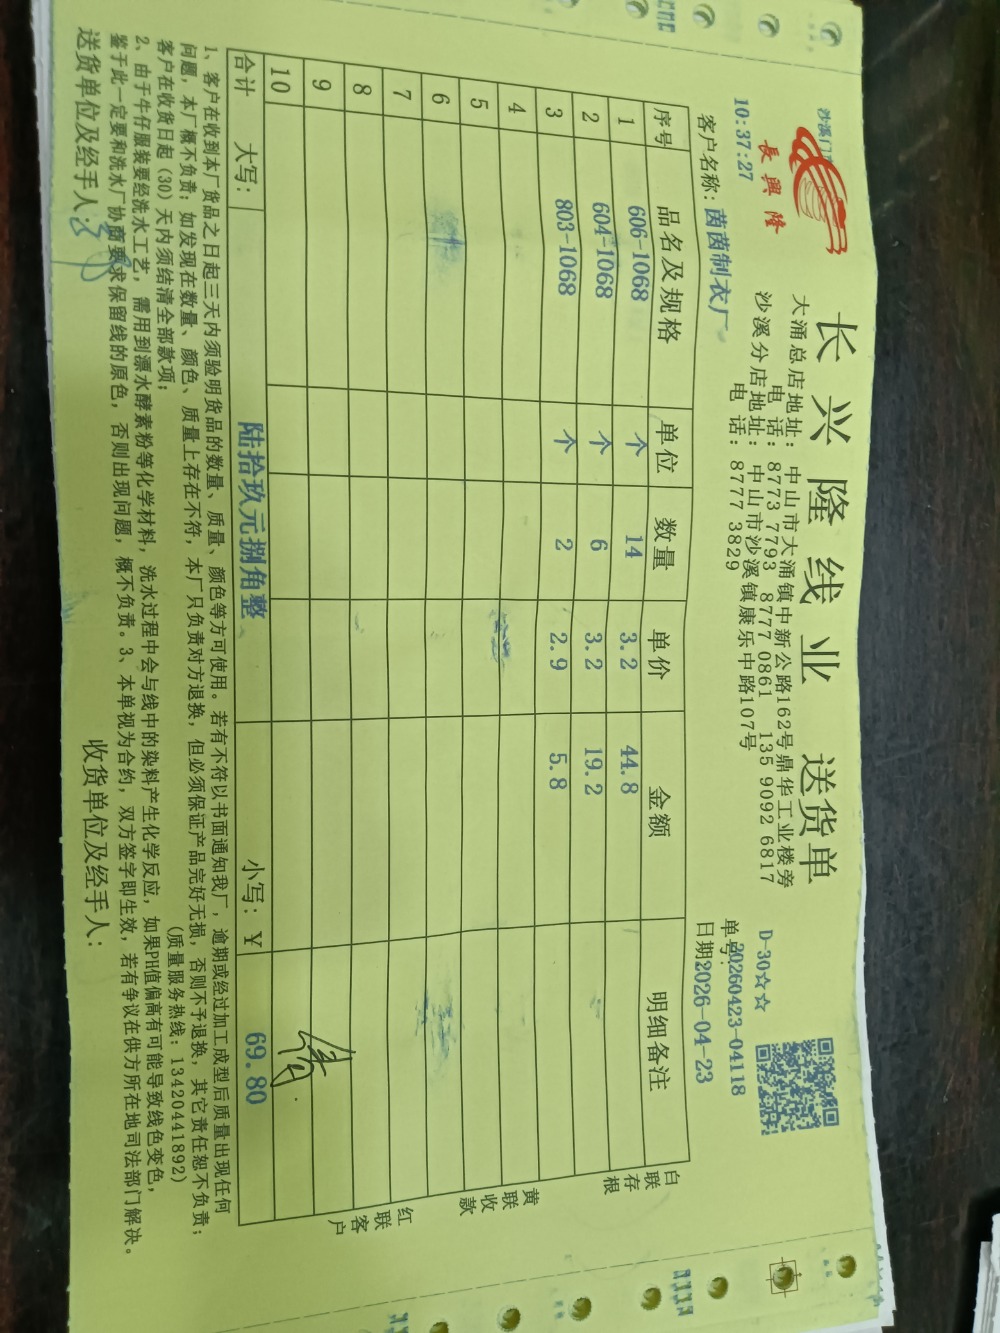 沙溪门市
長興隆
长兴隆线业 送货单
大涌总店地址：中山市大涌镇中新公路162号鼎华工业楼旁
电话：8773 7793 8777 0861 135 9092 6817
沙溪分店地址：中山市沙溪镇康乐中路107号
电话：8777 3829
D-30☆☆
10:37:27
单号：20260423-04118
客户名称：茵茵制衣厂
日期2026-04-23
序号 品名及规格 单位 数量 单价 金额 明细备注
1 606-1068 个 14 3.2 44.8
2 604-1068 个 6 3.2 19.2
3 803-1068 个 2 2.9 5.8
4
5
6
7
8
9
10
合计 大写：陆拾玖元捌角整 小写：¥ 69.80
白联存根
黄联收款
红联客户
1、客户在收到本厂货品之日起三天内须验明货品的数量、质量、颜色等方可使用。若有不符以书面通知我厂，逾期或经过加工成型后质量出现任何
问题，本厂概不负责；如发现在数量、颜色、质量上存在不符，本厂只负责对方退换，但必须保证产品完好无损，否则不予退换，其它责任恕不负责；
客户在收货日起（30）天内须结清全部款项；
（质量服务热线：13420441892）
2、由于牛仔服装要经洗水工艺，需用到漂水酵素粉等化学材料，洗水过程中会与线中的染料产生化学反应，如果PH值偏高有可能导致线色变色，
鉴于此一定要和洗水厂协商要求保留线的原色，否则出现问题，概不负责。3、本单视为合约，双方签字即生效，若有争议在供方所在地司法部门解决。
送货单位及经手人：
收货单位及经手人：